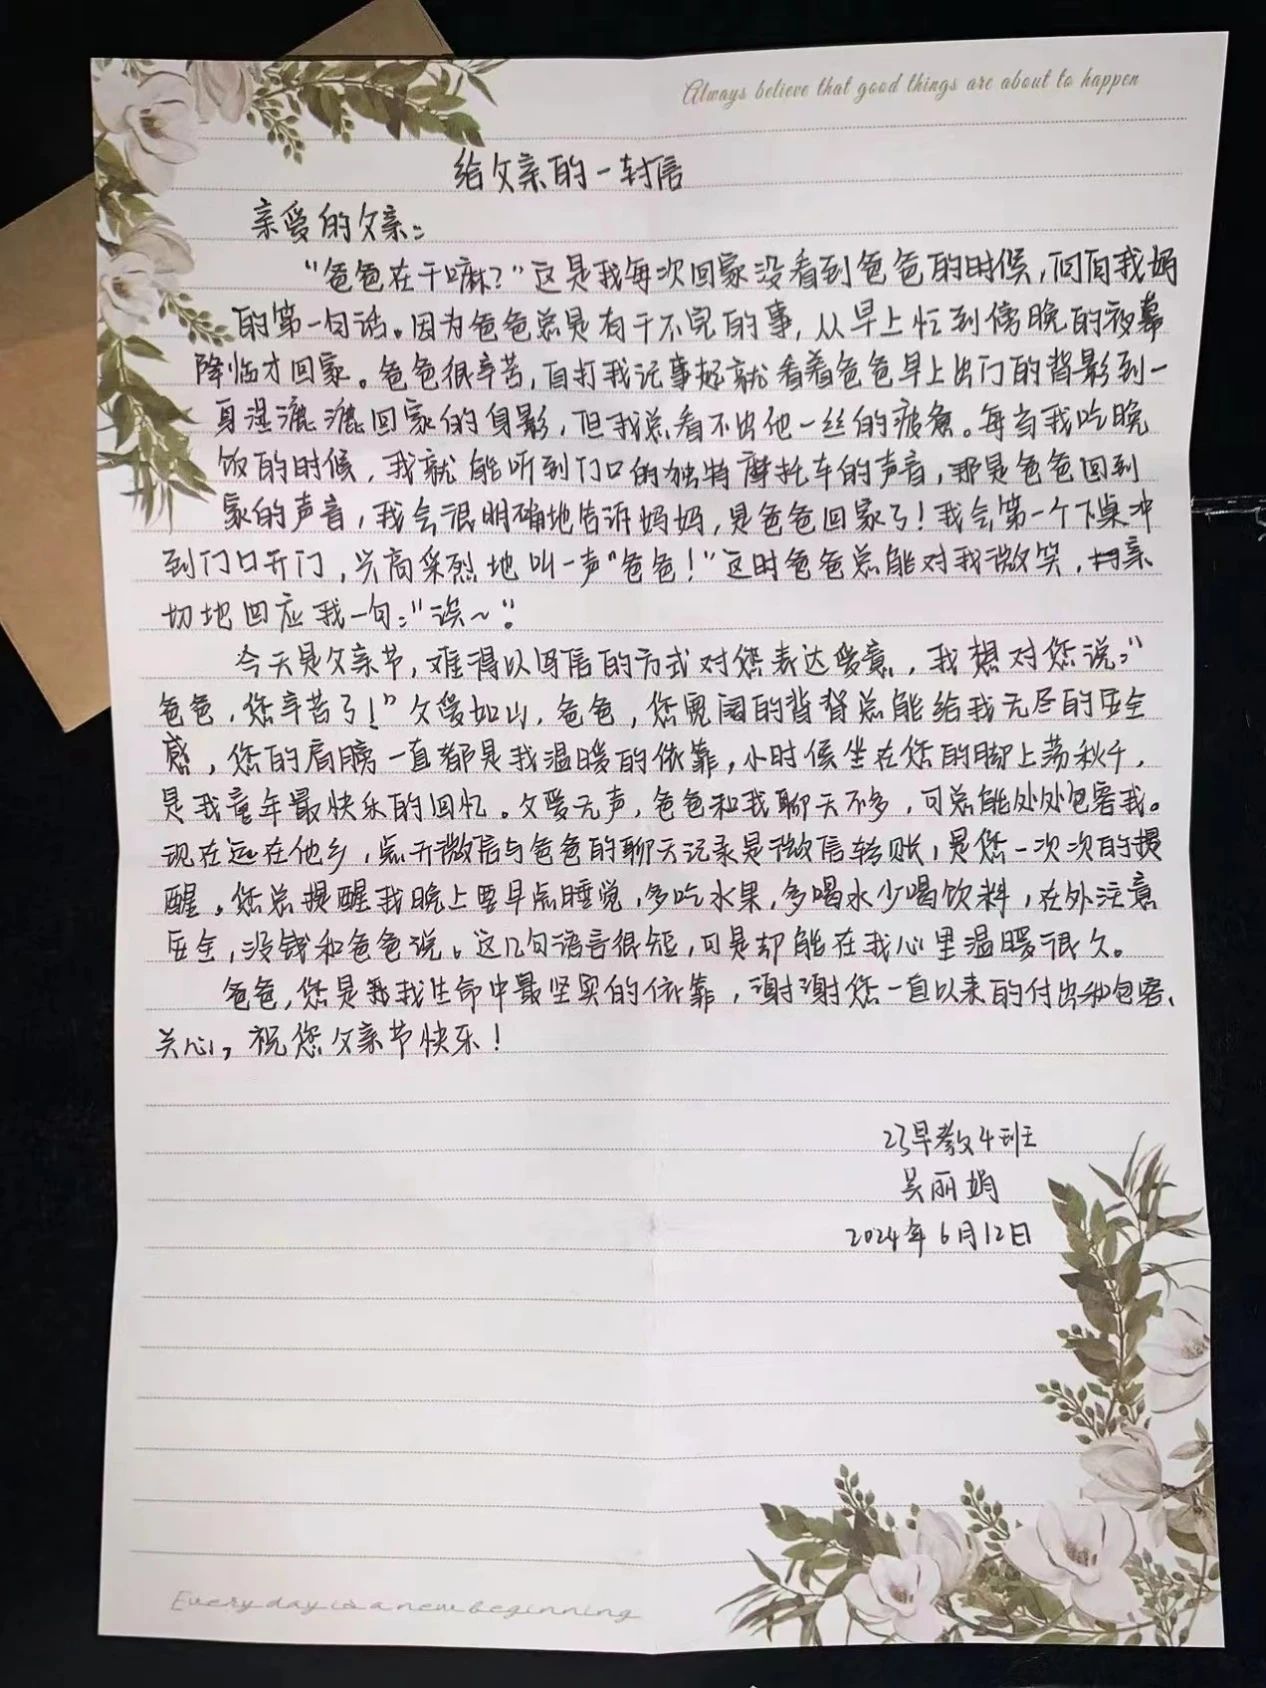 Always believe that good things are about to happen
给父亲的一封信
亲爱的父亲：
“爸爸在干嘛？”这是我每次回家没看到爸爸的时候，问自我妈
的第一句话。因为爸爸总是有干不完的事，从早上忙到傍晚的夜幕
降临才回家。爸爸很辛苦，自打我记事起就看着爸爸早上出门的背影到一
身湿漉漉回家的身影，但我总看不出他一丝的疲惫。每当我吃晚
饭的时候，我就能听到门口的独特摩托车的声音，那是爸爸回到
家的声音，我会很明确地告诉妈妈，是爸爸回家了！我会第一个下桌冲
到门口开门，兴高采烈地叫一声“爸爸！”这时爸爸总能对我微笑，亲
切地回应我一句：“诶~”。
今天是父亲节，难得以写信的方式对您表达爱意，我想对您说：“
爸爸，您辛苦了！”父爱如山，爸爸，您宽阔的背脊总能给我无尽的安全
感，您的肩膀一直都是我温暖的依靠，小时候坐在您的脚上荡秋千，
是我童年最快乐的回忆。父爱无声，爸爸和我聊天不多，可总能处处包容我。
现在远在他乡，点开微信与爸爸的聊天记录是微信转账，是您一次次的提
醒。您总提醒我晚上要早点睡觉，多吃水果，多喝水少喝饮料，在外注意
安全，没钱和爸爸说。这几句语言很短，可是却能在我心里温暖很久。
爸爸，您是我生命中最坚实的依靠，谢谢您一直以来的付出和包容、
关心，祝您父亲节快乐！
23早教4班
吴丽娟
2024年6月12日
Every day is a new beginning